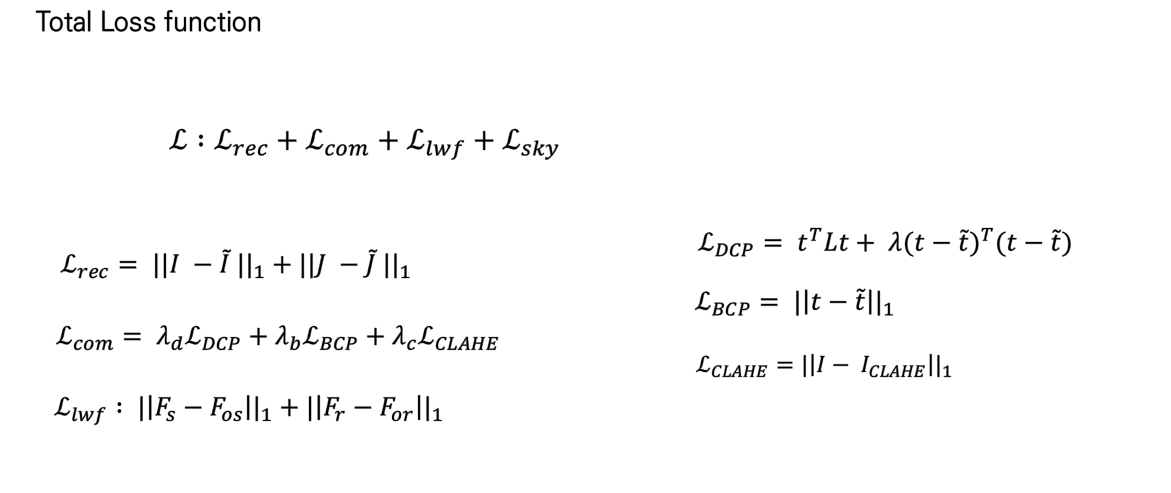 Total Loss function
ℒ : ℒ_rec + ℒ_com + ℒ_lwf + ℒ_sky
ℒ_rec = ||I − Ĩ ||₁ + ||J − J̃ ||₁
ℒ_com = λ_dℒ_DCP + λ_bℒ_BCP + λ_cℒ_CLAHE
ℒ_lwf : ||F_s − F_os||₁ + ||F_r − F_or||₁
ℒ_DCP = t^T Lt + λ(t − t̃)^T (t − t̃)
ℒ_BCP = ||t − t̃||₁
ℒ_CLAHE = ||I − I_CLAHE||₁